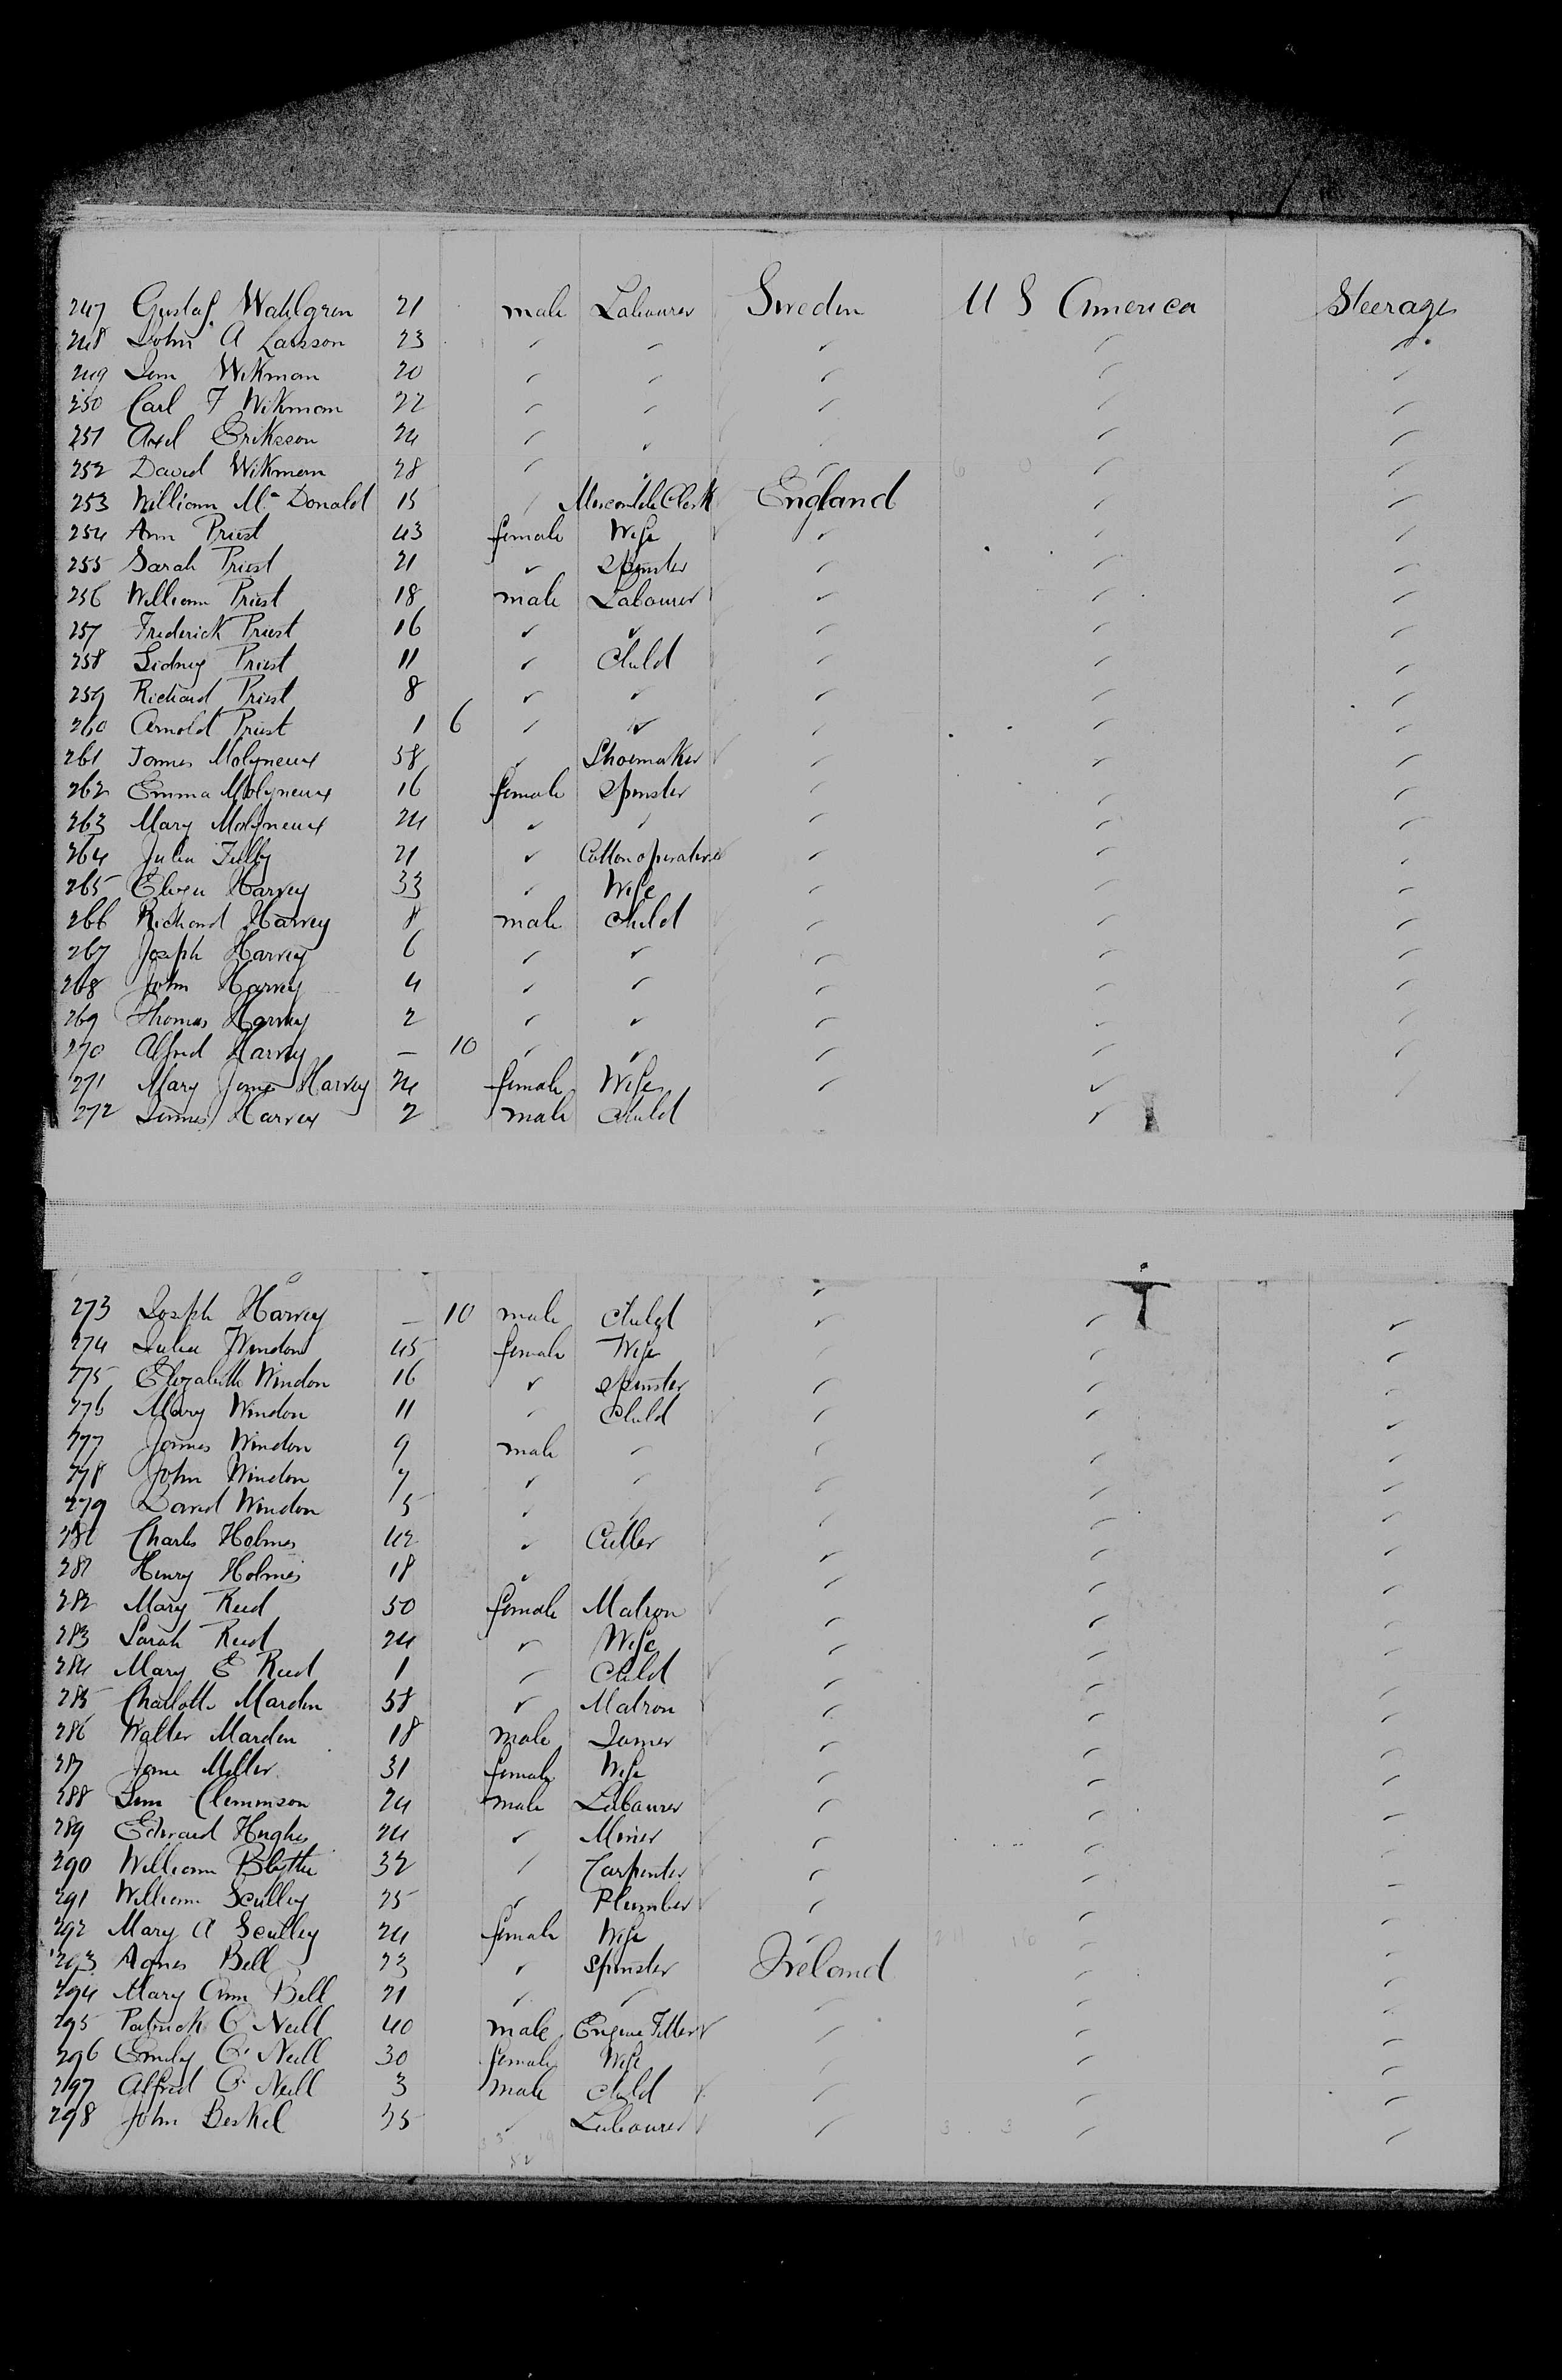 247 Gustaf Wahlgren 21 male Labourer Sweden U S America Steerage
248 John A Larsson 23 " " " " "
249 Wikman 20 " " " " "
250 Carl F Wikman 22 " " " " "
251 Axel Eriksson 24 " " " " "
252 David Wikman 28 " " " " "
253 William Mc Donald 15 " Mercantile Clerk England " "
254 Ann Priest 43 female Wife " " "
255 Sarah Priest 21 " Spinster " " "
256 William Priest 18 male Labourer " " "
257 Frederick Priest 16 " " " " "
258 Sidney Priest 11 " Child " " "
259 Richard Priest 8 " " " " "
260 Arnold Priest 1 6 " " " " "
261 James Molyneux 58 " Shoemaker " " "
262 Emma Molyneux 16 female Spinster " " "
263 Mary Molyneux 24 " " " " "
264 Julia 21 " Cotton operative " " "
265 Harvey 33 " Wife " " "
266 Richard Harvey 8 male Child " " "
267 Joseph Harvey 6 " " " " "
268 John Harvey 4 " " " " "
269 Thomas Harvey 2 " " " " "
270 Alfred Harvey — 10 " " " " "
271 Mary Jane Harvey 24 female Wife " " "
272 James Harvey 2 male Child " "
273 Joseph Harvey — 10 male Child " " "
274 Julia Windon 45 female Wife " " "
275 Elizabeth Windon 16 " Spinster " " "
276 Mary Windon 11 " Child " " "
277 James Windon 9 male " " " "
278 John Windon 7 " " " " "
279 David Windon 5 " " " " "
280 Charles Holmes 42 " Cutler " " "
281 Henry Holmes 18 " " " " "
282 Mary Reed 50 female Matron " " "
283 Sarah Reed 24 " Wife " " "
284 Mary E Reed 1 " Child " " "
285 Charlotte Marden 58 " Matron " " "
286 Walter Marden 18 male " " "
287 Jane Miller 31 female Wife " " "
288 Clemmson 24 male Labourer " " "
289 Edward Hughes 24 " Miner " " "
290 William Blythe 32 " Carpenter " " "
291 William Sculley 25 " Plumber " " "
292 Mary A Sculley 24 female Wife " " "
293 Agnes Bell 23 " Spinster Ireland " "
294 Mary Ann Bell 21 " " " " "
295 Patrick O'Neill 40 male Engine Fitter " " "
296 Emily O'Neill 30 female Wife " " "
297 Alfred O'Neill 3 male Child " " "
298 John Beskel 35 " Labourer " " "